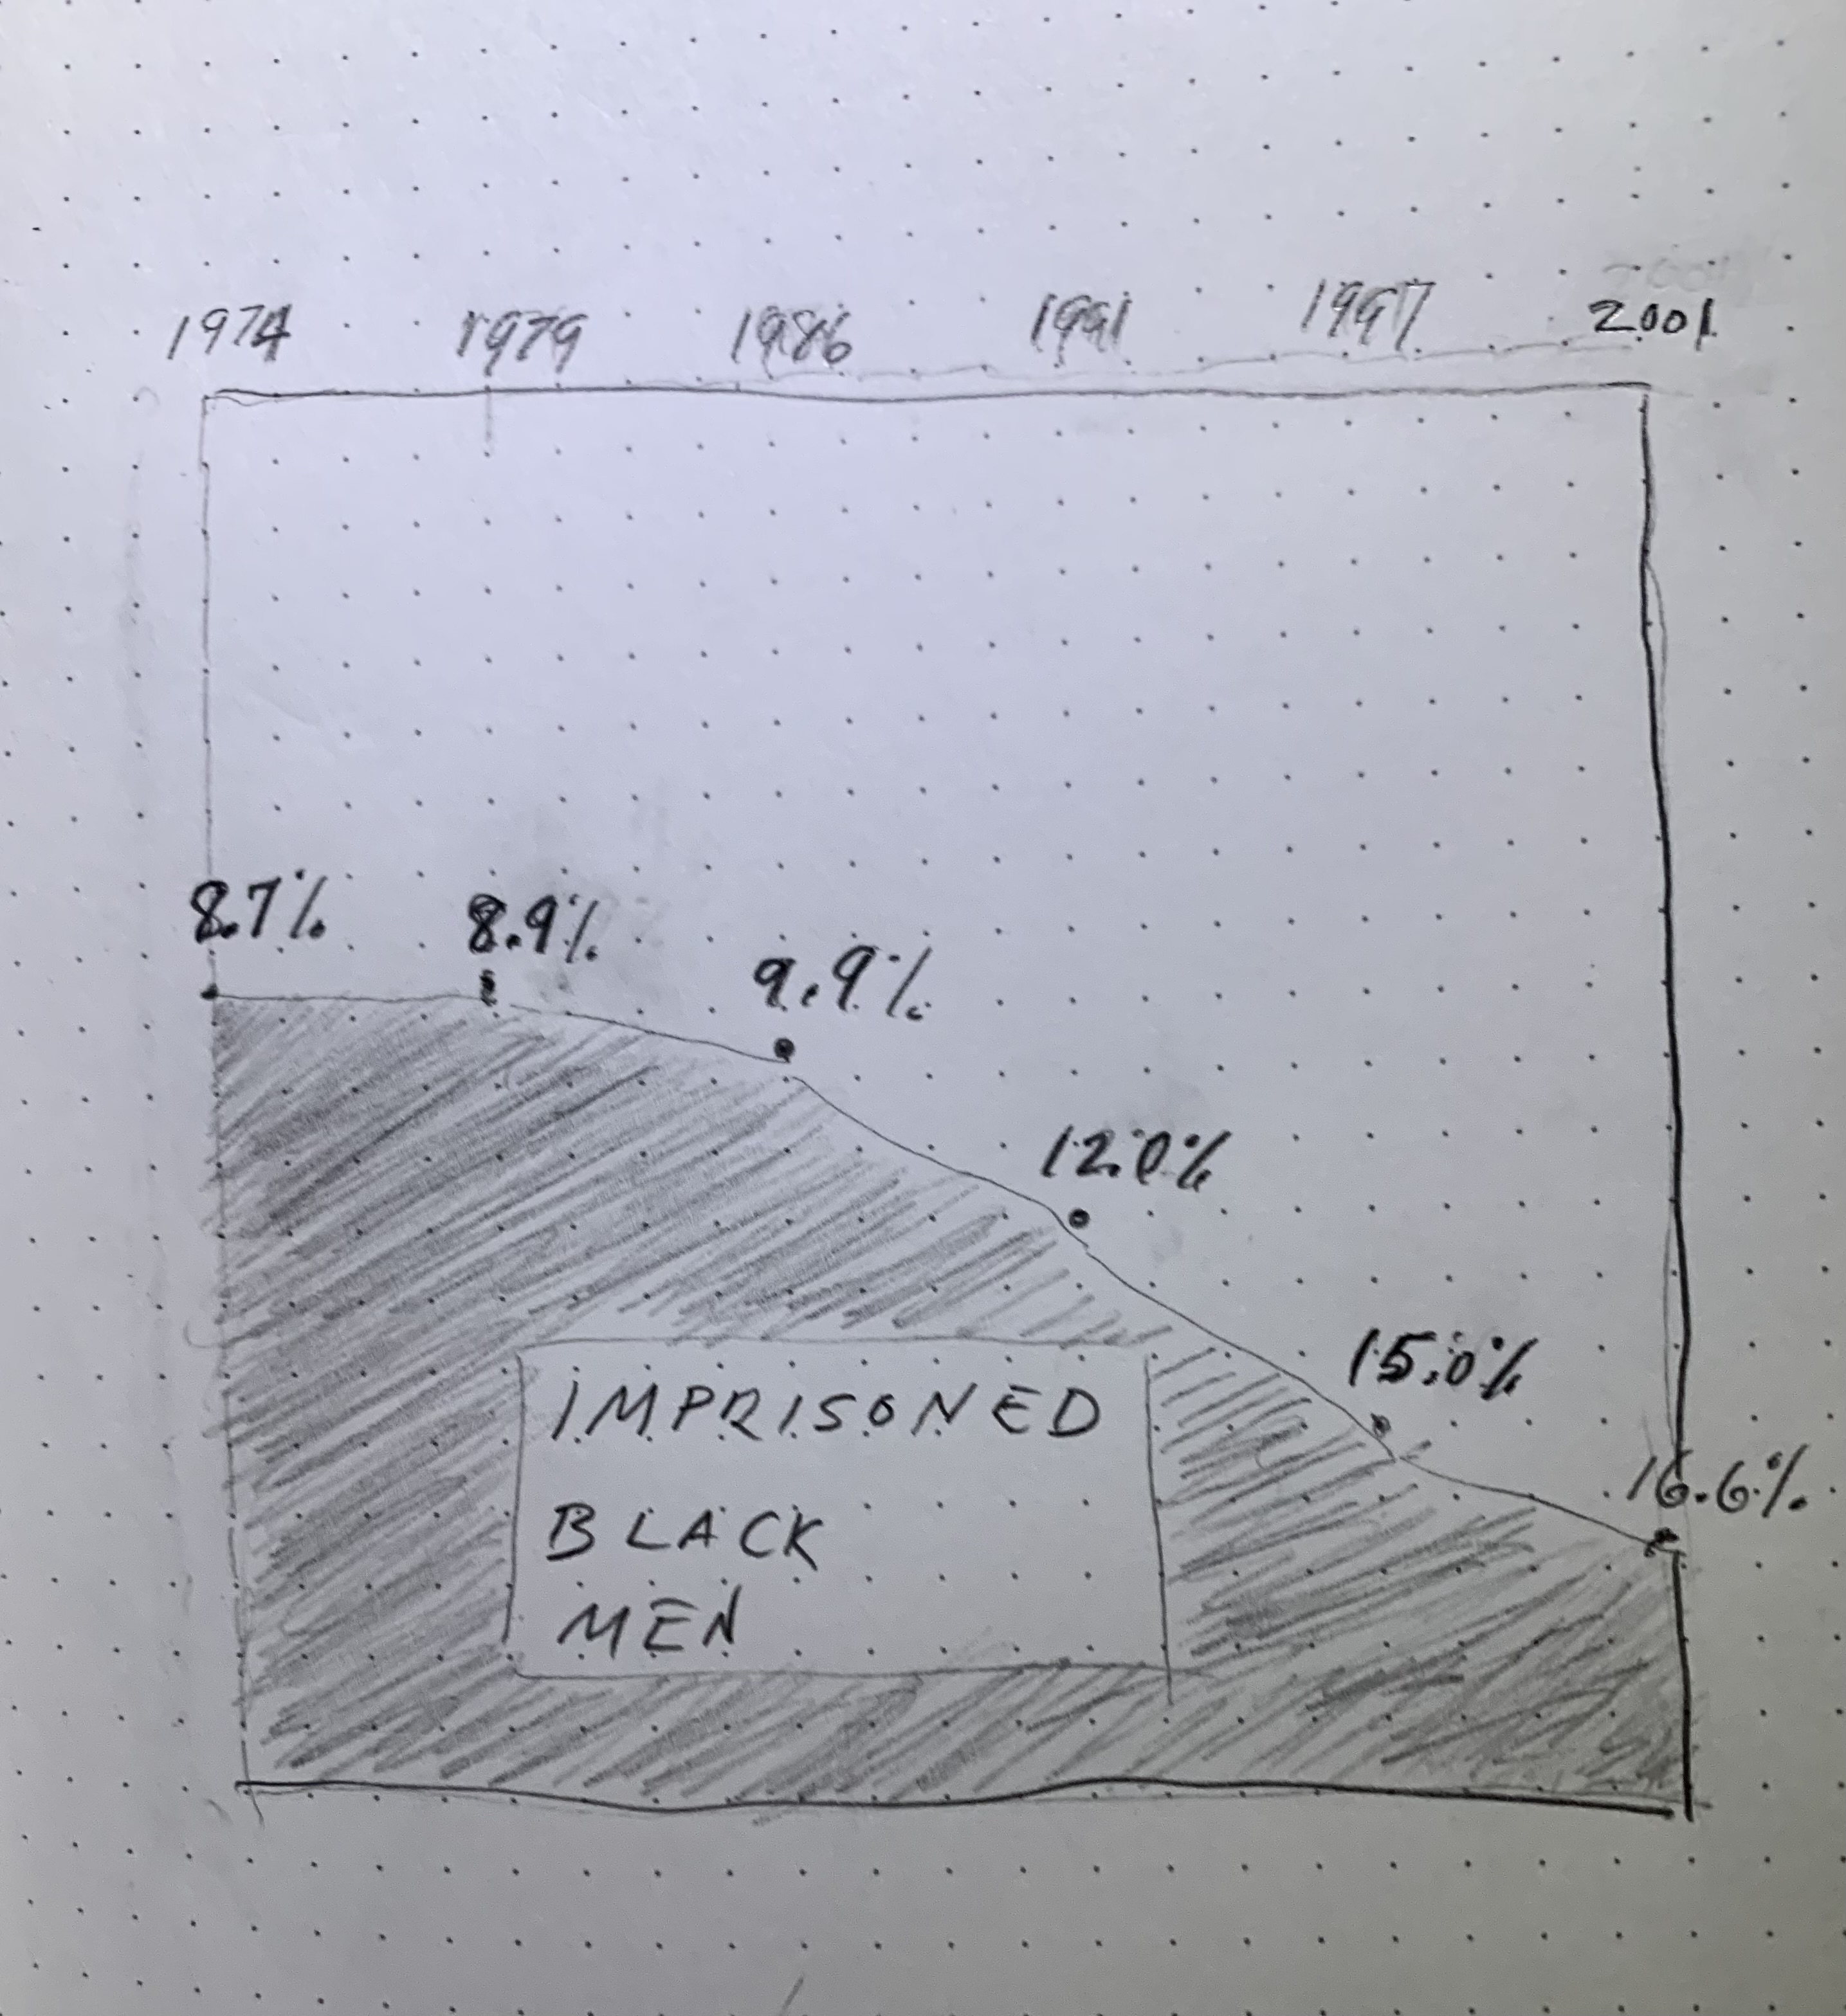 1974 1979 1986 1991 1997 2001
8.7%
8.9%
9.9%
12.0%
15.0%
16.6%
IMPRISONED
BLACK
MEN